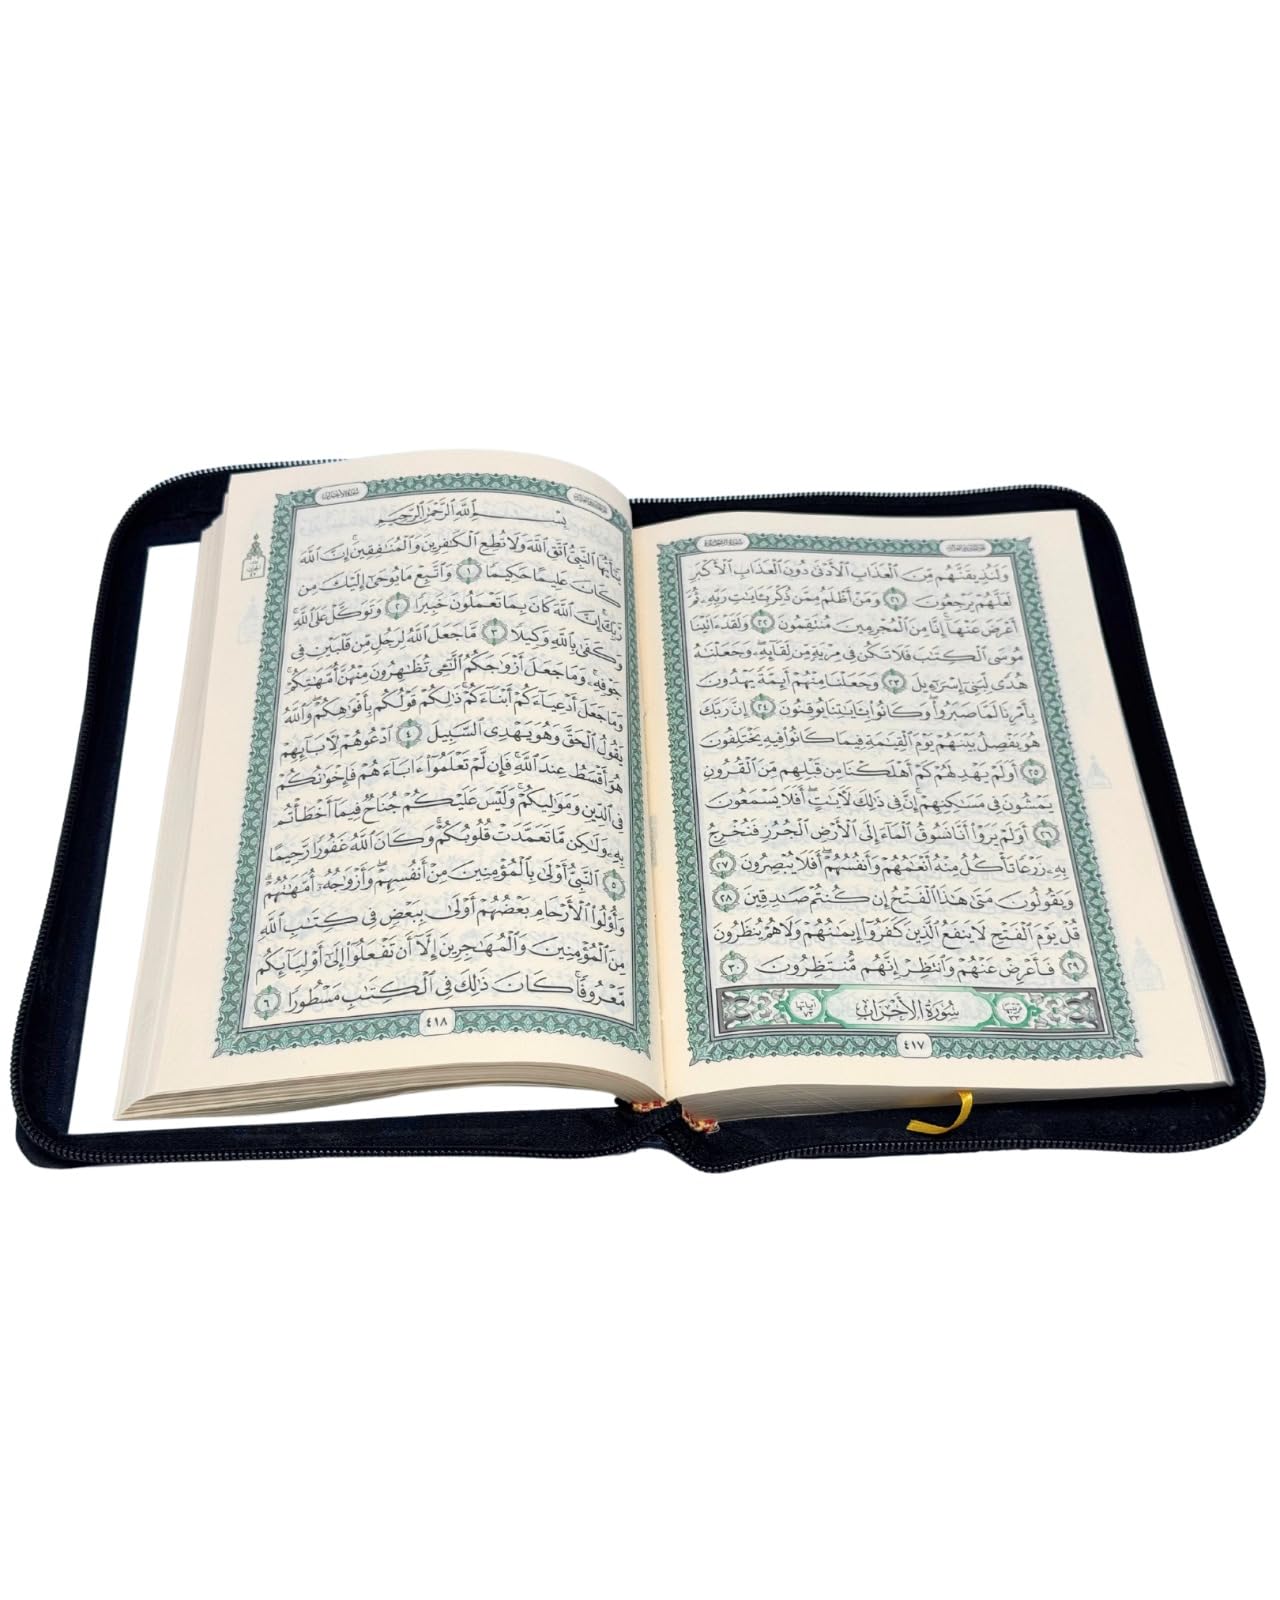 سورة السجدة
الجزء الحادي والعشرون
وَلَنُذِيقَنَّهُم مِّنَ ٱلْعَذَابِ ٱلْأَدْنَىٰ دُونَ ٱلْعَذَابِ ٱلْأَكْبَرِ
لَعَلَّهُمْ يَرْجِعُونَ ٢١ وَمَنْ أَظْلَمُ مِمَّن ذُكِّرَ بِـَٔايَٰتِ رَبِّهِۦ ثُمَّ
أَعْرَضَ عَنْهَآ ۚ إِنَّا مِنَ ٱلْمُجْرِمِينَ مُنتَقِمُونَ ٢٢ وَلَقَدْ ءَاتَيْنَا
مُوسَى ٱلْكِتَٰبَ فَلَا تَكُن فِى مِرْيَةٍ مِّن لِّقَآئِهِۦ ۖ وَجَعَلْنَٰهُ
هُدًى لِّبَنِىٓ إِسْرَٰٓءِيلَ ٢٣ وَجَعَلْنَا مِنْهُمْ أَئِمَّةً يَهْدُونَ
بِأَمْرِنَا لَمَّا صَبَرُوا۟ ۖ وَكَانُوا۟ بِـَٔايَٰتِنَا يُوقِنُونَ ٢٤ إِنَّ رَبَّكَ
هُوَ يَفْصِلُ بَيْنَهُمْ يَوْمَ ٱلْقِيَٰمَةِ فِيمَا كَانُوا۟ فِيهِ يَخْتَلِفُونَ
٢٥ أَوَلَمْ يَهْدِ لَهُمْ كَمْ أَهْلَكْنَا مِن قَبْلِهِم مِّنَ ٱلْقُرُونِ
يَمْشُونَ فِى مَسَٰكِنِهِمْ ۚ إِنَّ فِى ذَٰلِكَ لَءَايَٰتٍ ۖ أَفَلَا يَسْمَعُونَ
٢٦ أَوَلَمْ يَرَوْا۟ أَنَّا نَسُوقُ ٱلْمَآءَ إِلَى ٱلْأَرْضِ ٱلْجُرُزِ فَنُخْرِجُ
بِهِۦ زَرْعًا تَأْكُلُ مِنْهُ أَنْعَٰمُهُمْ وَأَنفُسُهُمْ ۖ أَفَلَا يُبْصِرُونَ ٢٧
وَيَقُولُونَ مَتَىٰ هَٰذَا ٱلْفَتْحُ إِن كُنتُمْ صَٰدِقِينَ ٢٨
قُلْ يَوْمَ ٱلْفَتْحِ لَا يَنفَعُ ٱلَّذِينَ كَفَرُوٓا۟ إِيمَٰنُهُمْ وَلَا هُمْ يُنظَرُونَ
٢٩ فَأَعْرِضْ عَنْهُمْ وَٱنتَظِرْ إِنَّهُم مُّنتَظِرُونَ ٣٠
ترتيبها ٣٣ سُورَةُ الأَحْزَابِ آياتها ٧٣
٤١٧
سورة الأحزاب
الجزء الحادي والعشرون
بِسْمِ ٱللَّهِ ٱلرَّحْمَٰنِ ٱلرَّحِيمِ
يَٰٓأَيُّهَا ٱلنَّبِىُّ ٱتَّقِ ٱللَّهَ وَلَا تُطِعِ ٱلْكَٰفِرِينَ وَٱلْمُنَٰفِقِينَ ۗ إِنَّ ٱللَّهَ
كَانَ عَلِيمًا حَكِيمًا ١ وَٱتَّبِعْ مَا يُوحَىٰٓ إِلَيْكَ مِن
رَّبِّكَ ۚ إِنَّ ٱللَّهَ كَانَ بِمَا تَعْمَلُونَ خَبِيرًا ٢ وَتَوَكَّلْ عَلَى ٱللَّهِ ۚ
وَكَفَىٰ بِٱللَّهِ وَكِيلًا ٣ مَّا جَعَلَ ٱللَّهُ لِرَجُلٍ مِّن قَلْبَيْنِ فِى
جَوْفِهِۦ ۚ وَمَا جَعَلَ أَزْوَٰجَكُمُ ٱلَّٰٓـِٔى تُظَٰهِرُونَ مِنْهُنَّ أُمَّهَٰتِكُمْ ۚ
وَمَا جَعَلَ أَدْعِيَآءَكُمْ أَبْنَآءَكُمْ ۚ ذَٰلِكُمْ قَوْلُكُم بِأَفْوَٰهِكُمْ ۖ وَٱللَّهُ
يَقُولُ ٱلْحَقَّ وَهُوَ يَهْدِى ٱلسَّبِيلَ ٤ ٱدْعُوهُمْ لِءَابَآئِهِمْ
هُوَ أَقْسَطُ عِندَ ٱللَّهِ ۚ فَإِن لَّمْ تَعْلَمُوٓا۟ ءَابَآءَهُمْ فَإِخْوَٰنُكُمْ
فِى ٱلدِّينِ وَمَوَٰلِيكُمْ ۚ وَلَيْسَ عَلَيْكُمْ جُنَاحٌ فِيمَآ أَخْطَأْتُم
بِهِۦ وَلَٰكِن مَّا تَعَمَّدَتْ قُلُوبُكُمْ ۚ وَكَانَ ٱللَّهُ غَفُورًا رَّحِيمًا
٥ ٱلنَّبِىُّ أَوْلَىٰ بِٱلْمُؤْمِنِينَ مِنْ أَنفُسِهِمْ ۖ وَأَزْوَٰجُهُۥٓ أُمَّهَٰتُهُمْ ۗ
وَأُو۟لُوا۟ ٱلْأَرْحَامِ بَعْضُهُمْ أَوْلَىٰ بِبَعْضٍ فِى كِتَٰبِ ٱللَّهِ
مِنَ ٱلْمُؤْمِنِينَ وَٱلْمُهَٰجِرِينَ إِلَّآ أَن تَفْعَلُوٓا۟ إِلَىٰٓ أَوْلِيَآئِكُم
مَّعْرُوفًا ۚ كَانَ ذَٰلِكَ فِى ٱلْكِتَٰبِ مَسْطُورًا ٦
٤١٨